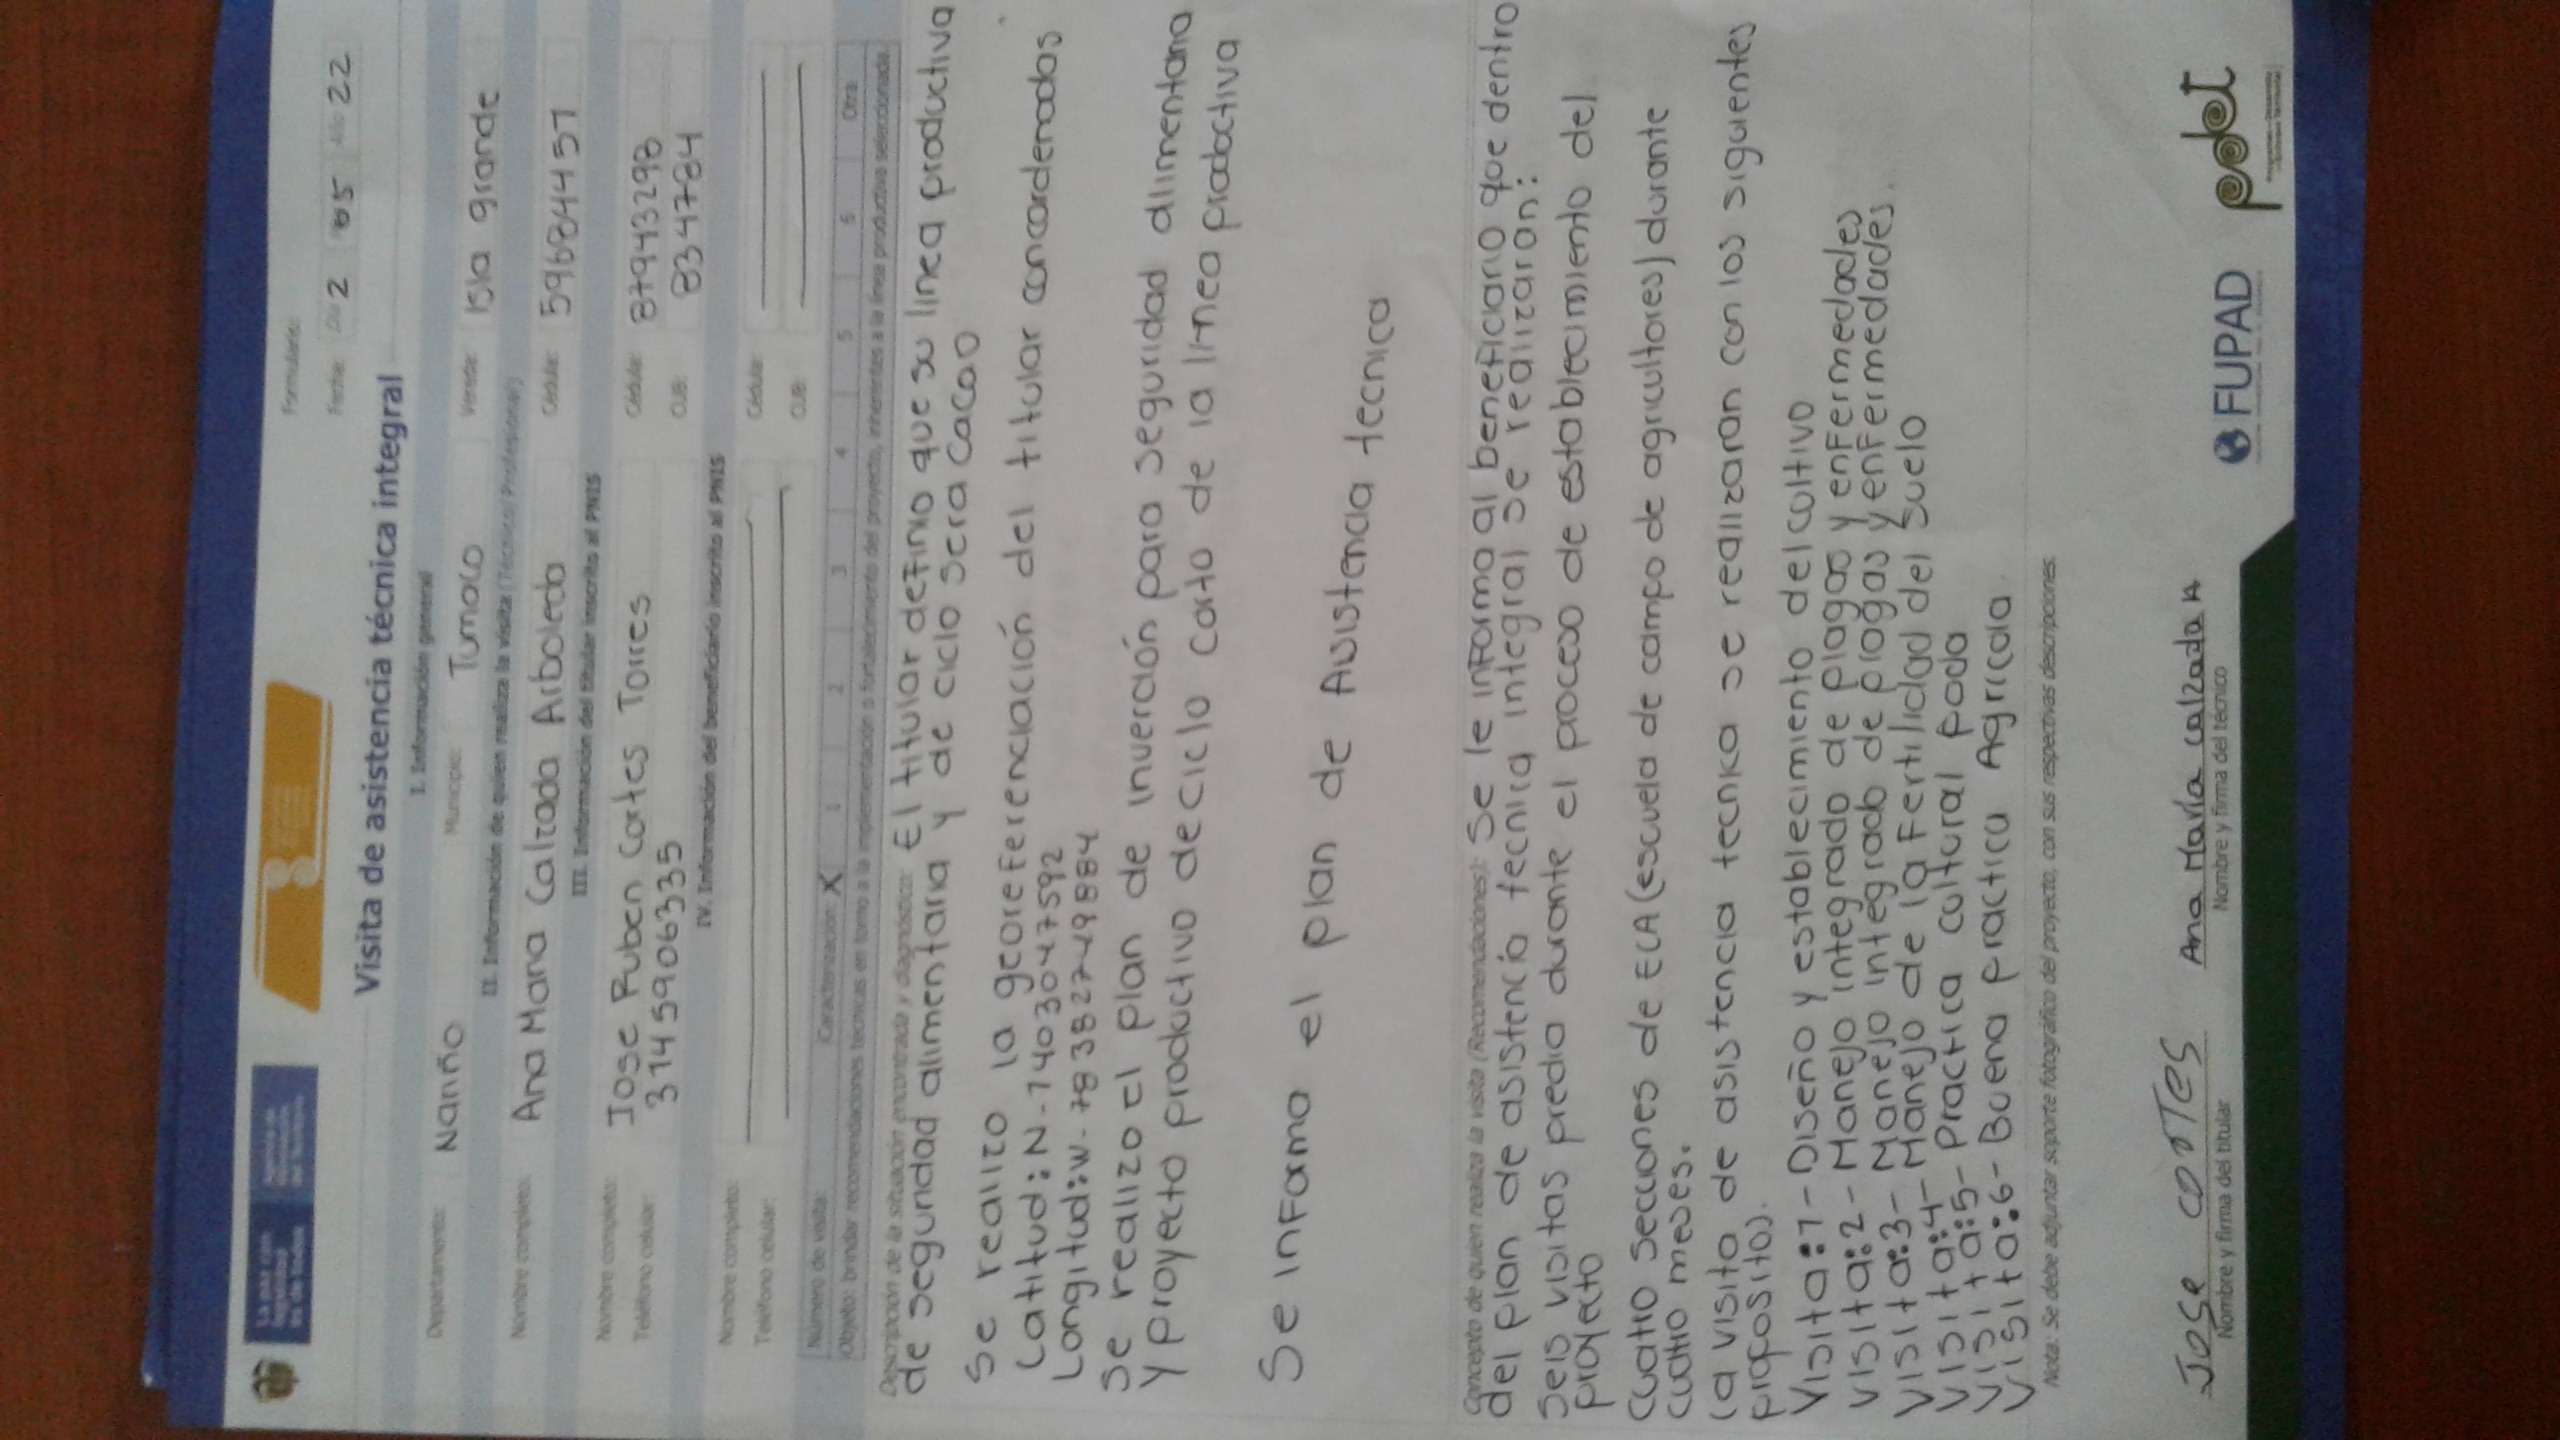 La paz con legalidad es de todos
Formulario:
Fecha: Día 2 05 Año 22
Visita de asistencia técnica integral
I. Información general
Departamento: Nariño Municipio: Tumaco Vereda: Isla grande
II. Información de quien realiza la visita (Técnico/ Profesional)
Nombre completo: Ana Maria Calzada Arboleda Cédula: 59684457
III. Información del titular inscrito al PNIS
Nombre completo: Jose Ruben Cortes Torres Cédula: 87943298
Teléfono celular: 3145906335 CUB: 8347784
IV. Información del beneficiario inscrito al PNIS
Nombre completo: Cédula:
Teléfono celular: CUB:
Número de visita: Caracterización X 1 2 3 4 5 6 Otra
Objeto: brindar recomendaciones técnicas en torno a la implementación o fortalecimiento del proyecto, inherentes a la línea productiva seleccionada.
Descripción de la situación encontrada y diagnóstico: El titular definio que su linea productiva
de segundad alimentaria y de ciclo sera Cacao
Se realizo la georeferenciación del titular concordenadas
Latitud: N-1403047592
Longitud: W-78382749884
Se realizo el plan de inverción para seguridad alimentaria
y proyecto productivo de ciclo corto de la linea productiva
Se informo el plan de Asistencia tecnica
Concepto de quien realiza la visita (Recomendaciones): Se le informo al beneficiario que dentro
del plan de asistencia tecnica integral se realizaron:
Seis visitas predio durante el proceso de establecimiento del
proyecto
Cuatro Secciones de ECA (escuela de campo de agricultores) durante
cuatro meses.
La visita de asistencia tecnica se realizaran con los siguientes
propositos).
Visita:1- Diseño y establecimiento del cultivo
Visita:2- Manejo integrado de plagas y enfermedades
Visita:3- Manejo integrado de plogas y enfermedades.
Visita:4- Manejo de la Fertilidad del suelo
Visita:5- Practica cultural poda
Visita:6- Buena practica Agricola.
Nota: Se debe adjuntar soporte fotográfico del proyecto, con sus respectivas descripciones.
Jose corTes Ana María Calzada A
Nombre y firma del titular Nombre y firma del técnico
FUPAD
pdet